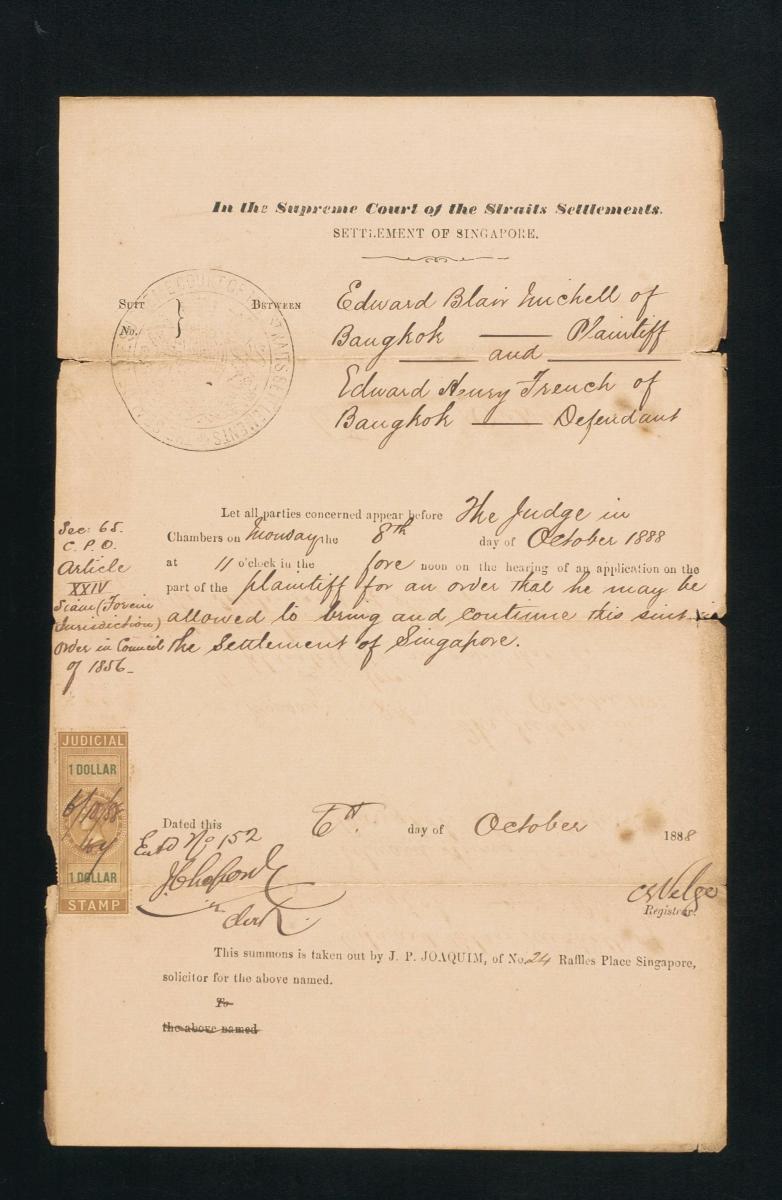 In the Supreme Court of the Straits Settlements.
SETTLEMENT OF SINGAPORE.
SUIT } BETWEEN
No.
Edward Blair Michell of
Bangkok — Plaintiff
— and —
Edward Henry French of
Bangkok — Defendant
Let all parties concerned appear before The Judge in
Chambers on Monday the 8th day of October 1888
at 11 o'clock in the fore noon on the hearing of an application on the
part of the plaintiff for an order that he may be
allowed to bring and continue this suit in
the Settlement of Singapore.
Sec: 65.
C. P. O.
Article
XXIV
Siam (Forein
Jurisdiction)
Order in Council
of 1856
JUDICIAL
1 DOLLAR
6/10/88
1 DOLLAR
STAMP
Dated this 6th. day of October 1888
Entd No 152
Clerk
Registrar.
This summons is taken out by J. P. JOAQUIM, of No. 24 Raffles Place Singapore,
solicitor for the above named.
To
the above named